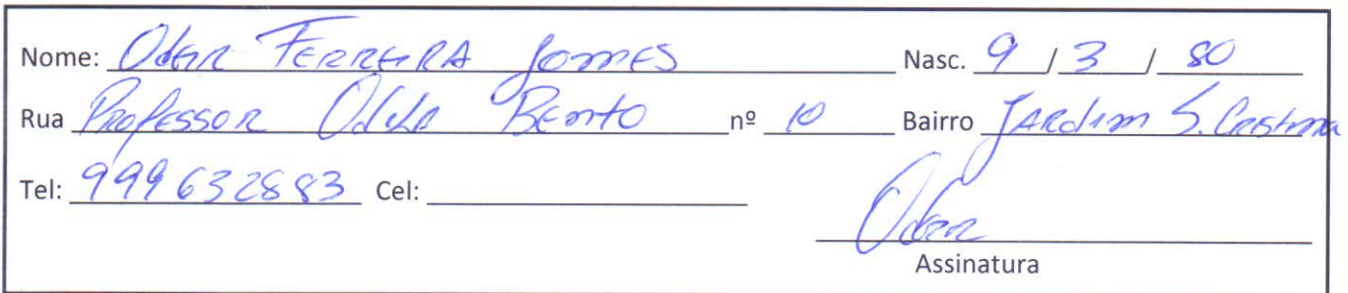 Nome: Odair Ferreira Gomes Nasc. 9 / 3 / 80
Rua Professor Odila Bento nº 10 Bairro Jardim S. Cristina
Tel: 999632883 Cel:
Odair
Assinatura